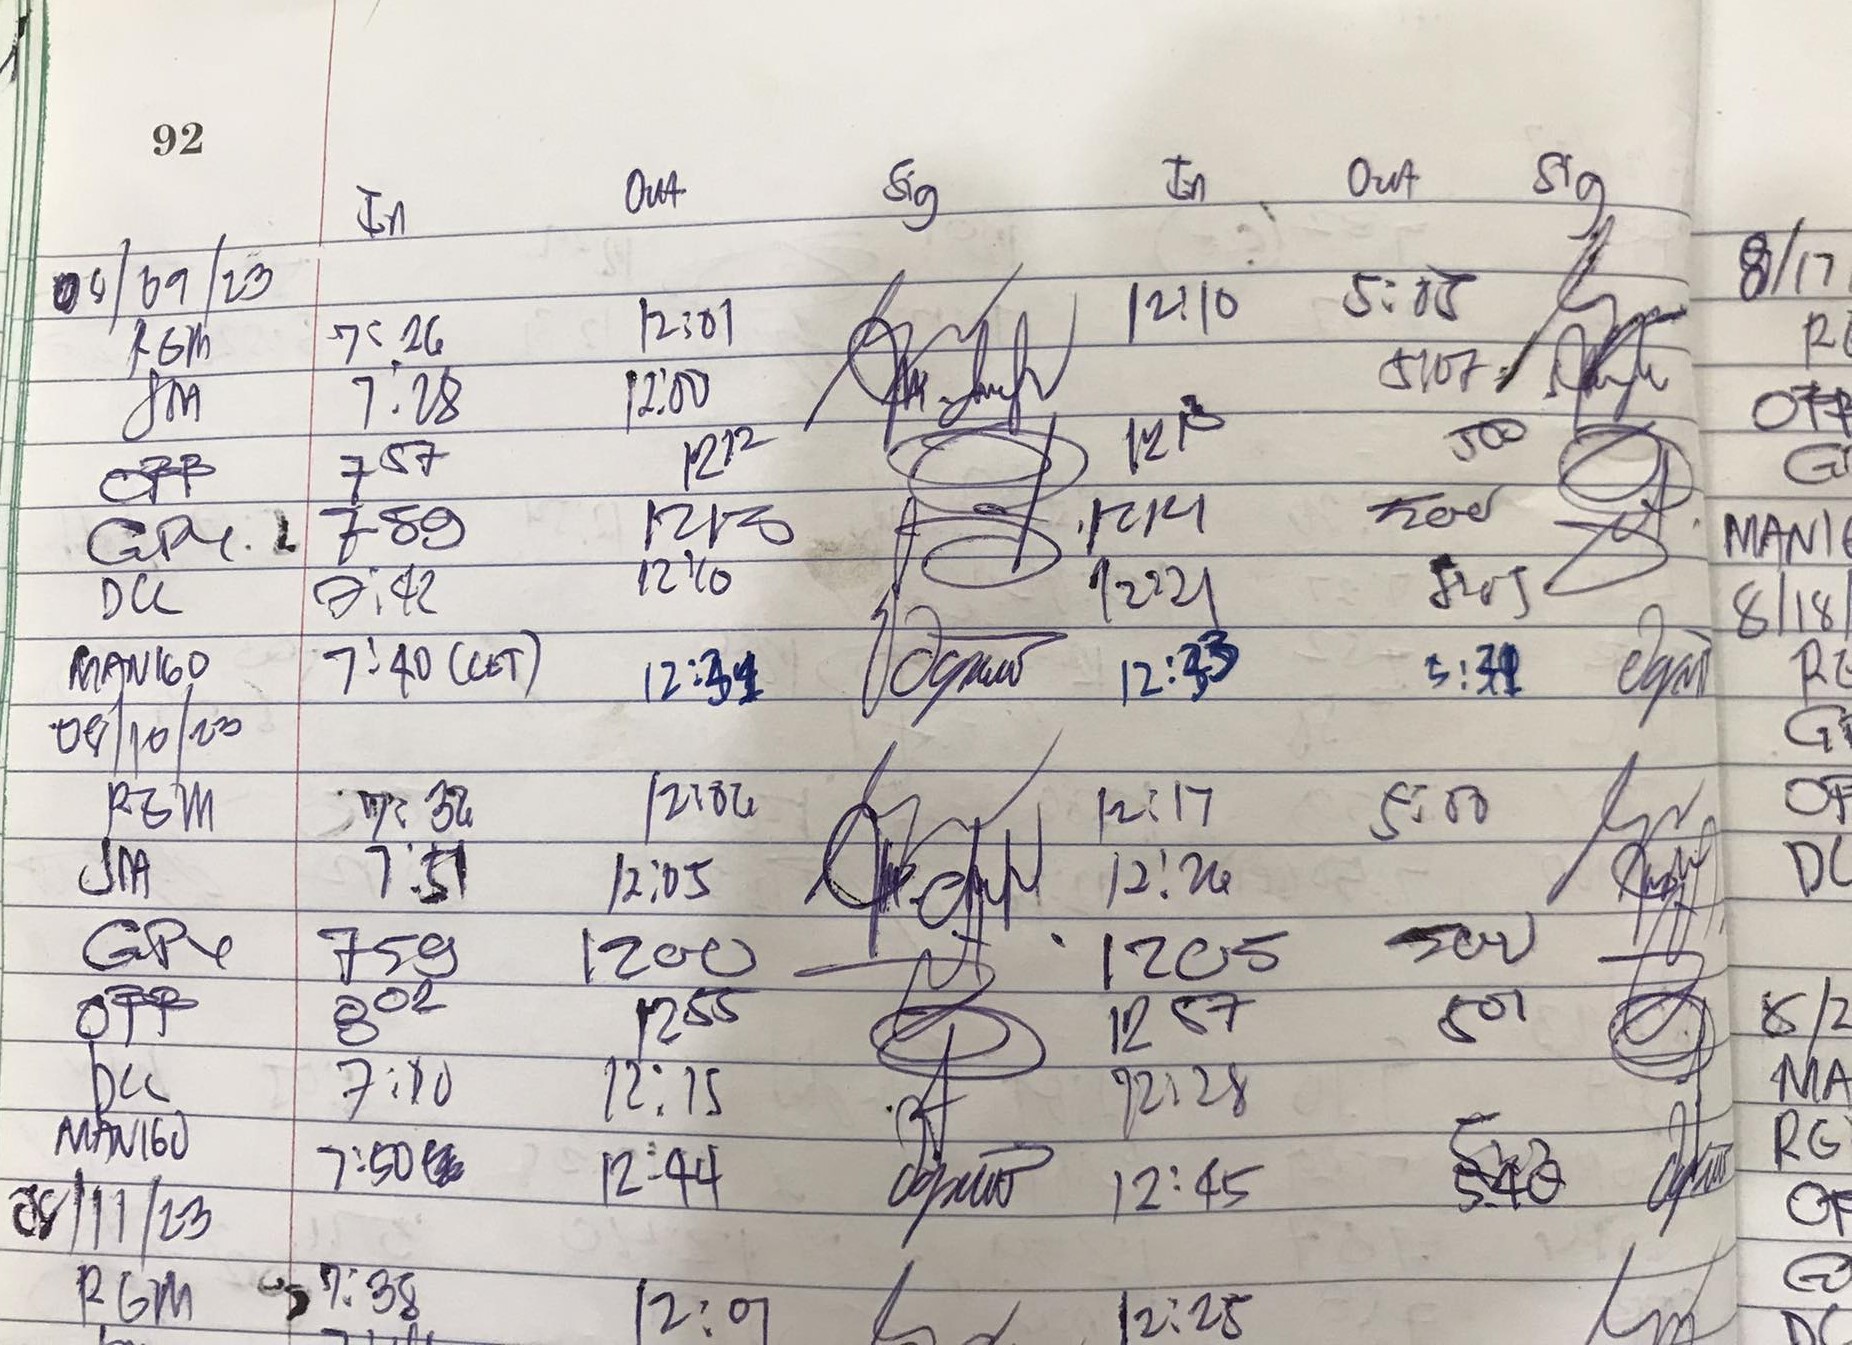 92
In Out Sig In Out Sig
08/09/23
RGM 7:26 12:01 12:10 5:05
JMA 7:28 12:00 5:07
OFF 7 57 12 12 12 13 500
GPY 7 59 12 13 12 14 500
DCC 7:42 12:10 12:21 5:05
MANIGO 7:40 (CET) 12:31 12:33 5:31
08/10/23
RGM 7:32 12:06 12:17 5:00
JMA 7:51 12:05 12:26
GPY 7 59 12 00 12 05 500
OFF 8 02 12 55 12 57 5 01
DCC 7:10 12:15 12:28
MANIGO 7:50 12:44 12:45 5:40
08/11/23
RGM 7:38 12:01 12:25
8/17
OFF
MANIG
8/18/
DC
8/2
MA
RG
DC